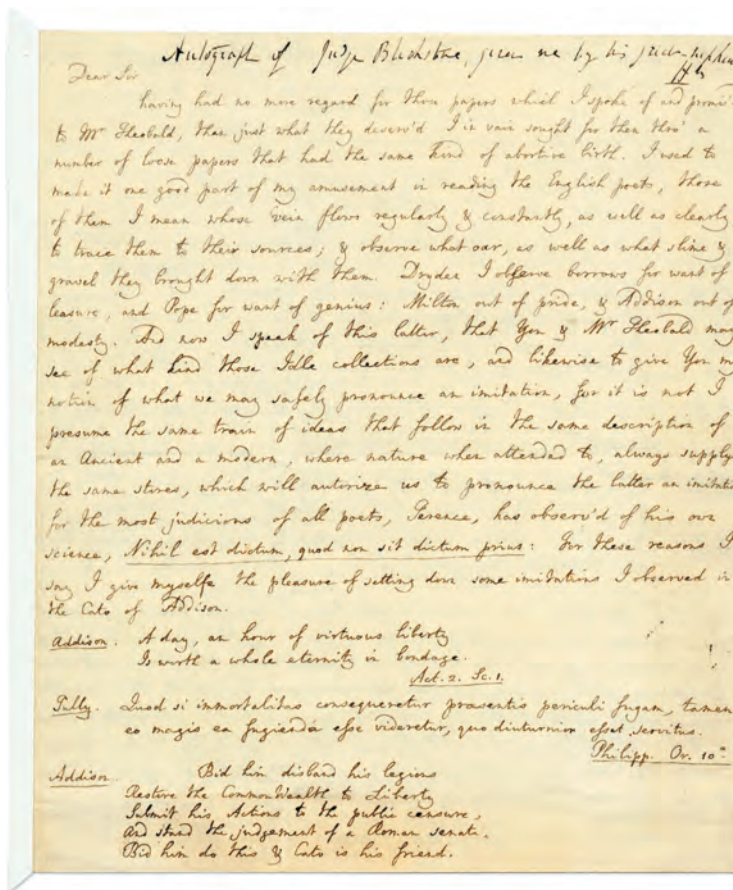 Autograph of Judge Blackstone, given me by his great-nephew
Dear Sir
having had no more regard for those papers which I spoke of and promis'd
to Mr Theobald, than just what they deserv'd I in vain sought for them thro' a
number of loose papers that had the same kind of abortive birth. I used to
make it one good part of my amusement in reading the English poets, those
of them I mean whose vein flows regularly & constantly, as well as clearly
to trace them to their sources; & observe what oar, as well as what slime &
gravel they brought down with them. Dryden I observe borrows for want of
leasure, and Pope for want of genius: Milton out of pride, & Addison out of
modesty. And now I speak of this latter, that You & Mr Theobald may
see of what kind those Idle collections are, and likewise to give You my
notion of what we may safely pronounce an imitation, for it is not I
presume the same train of ideas that follow in the same description of
an Ancient and a modern, where nature when attended to, always supply
the same stores, which will autorize us to pronounce the latter an imitatio
for the most judicious of all poets, Terence, has observ'd of his own
science, Nihil est dictum, quod non sit dictum prius: For these reasons I
say I give myselfe the pleasure of setting down some imitations I observed in
the Cato of Addison.
Addison. A day, an hour of virtuous liberty
Is worth a whole eternity in bondage.
Act. 2. Sc. 1.
Tully. Quod si immortalitas consequeretur præsentis periculi fugam, tamen
eo magis ea fugienda esse videretur, quo diuturnior esset servitus.
Philipp. Or. 10ª
Addison. Bid him disband his legions
Restore the CommonWealth to Liberty
Submit his Actions to the public censure,
And stand the judgement of a Roman senate.
Bid him do this & Cato is his friend.